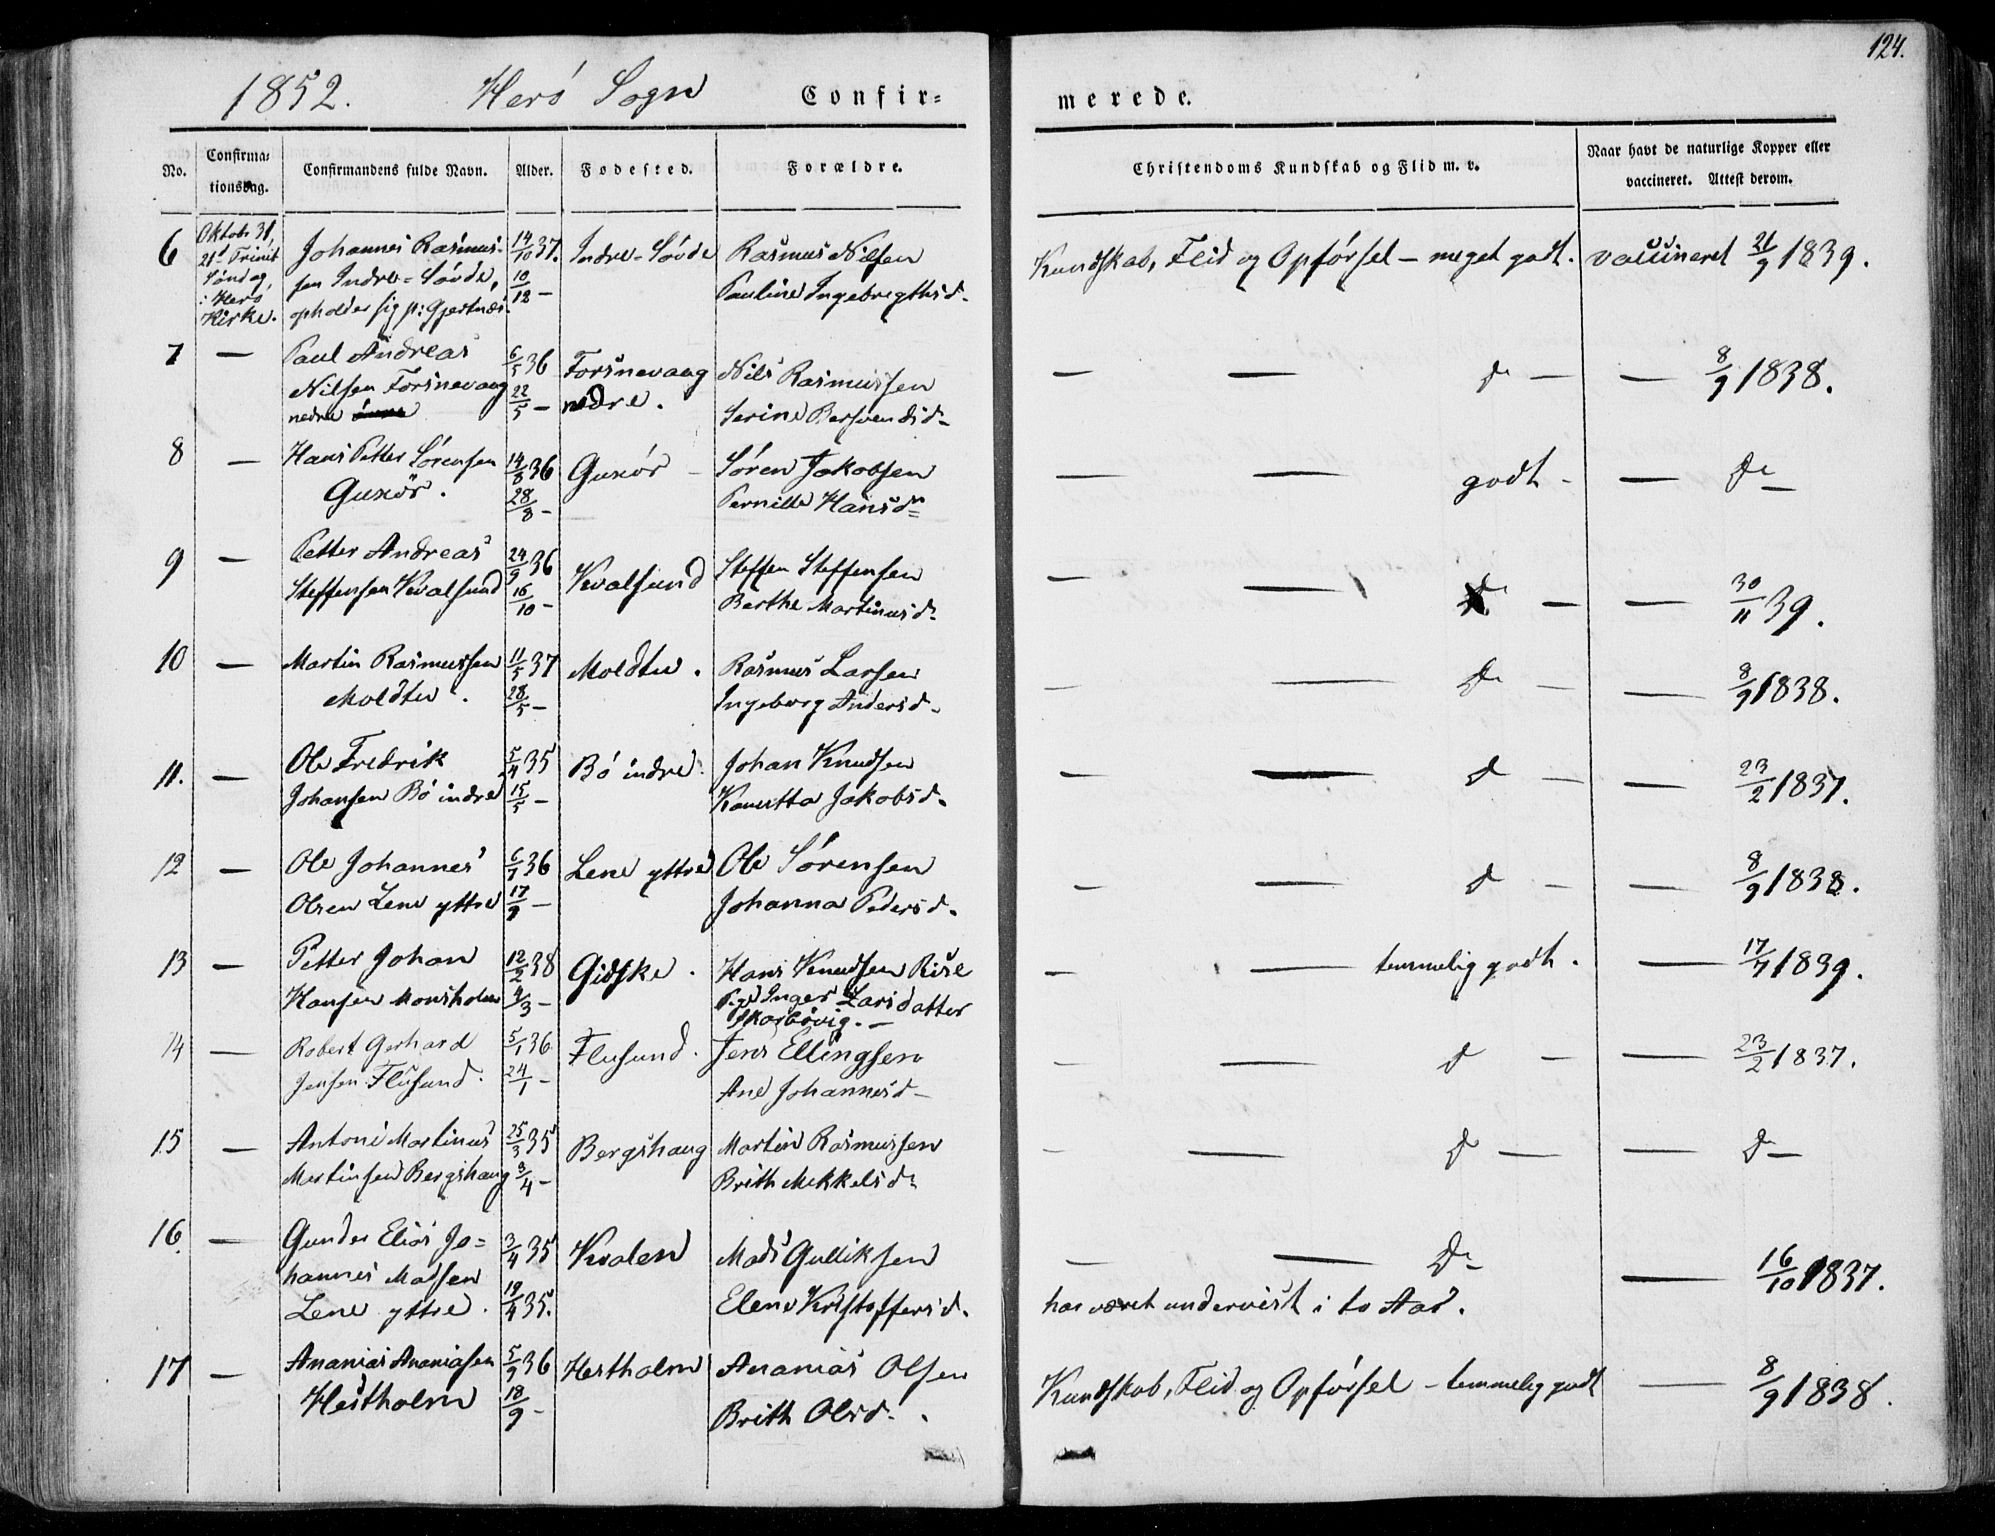 124.
1852. Herö Sogn Confir= merede.
No. Confirma= tionsdag. Confirmandens fulde Navn. Alder. Fødested. Forældre. Christendoms Kundskab og Flid m. v. Naar havt de naturlige Kopper eller vaccineret. Attest derom.
6 Oktob. 31, Johannes Rasmus- 14/10 37. Indre-Sövde Rasmus Nilsen Kundskab, Flid og Opförsel - meget godt. vaccineret 21/9 1839.
21d Trinit
Söndag, sen Indre-Sövde, 10/12 - Pauline Ingebrigthsd.
i Herö
Kirke. opholder sig p: Gjertnes.
7 — Paul Andreas 6/5 36 Forsnevaag Nils Rasmussen — — do — — 8/9 1838.
Nilsen Forsnevaag 22/5 - nedre. Serine Bersvendsd.
nedre
8 — Hans Petter Sörensen 14/8 36 Guxör Sören Jakobsen — — godt - — Do —
Guxör. 28/8 - Pernille Hansd.
9 — Petter Andreas 24/9 36 Kvalsund Steffen Steffensen — — Do — — 30/11 39.
Steffensen Kvalsund 16/10 - Berthe Martinusd.
10 — Martin Rasmussen 11/5 37 Moldtu. Rasmus Larsen — — Do — — 8/9 1838.
Moldtu. 28/5 - Ingeborg Andersd.
11. — Ole Fredrik 5/4 35 Bö indre. Johan Knudsen — — do — — 23/2 1837.
Johansen Bö indre 15/5 - Jakobsd.
12 — Ole Johannes 6/7 36 Lene yttre Ole Sörensen — — do — — 8/9 1838.
Olsen Lene yttre 17/9 - Johanna Pedersd.
13 — Petter Johan 12/2 38 Gidske. Hans Knudsen Rise — — temmelig godt. — 17/7 1839.
Hansen Monsholm 4/3 - Pige Inger Larsdatter
Skorbövig. -
14 — Robert Gerhard 5/1 36 Flusund. Jens Ellingsen — — do — — 23/2 1837.
Jensen Flusund. 24/1 - Ane Johannesd -
15 — Antoni Martinus 25/3 35 Bergshaug Martin Rasmussen — — do — — Do —
Martinsen Bergshaug 3/4 - Brith Mikkelsd.
16 — Gunder Elias Jo= 3/4 35 Kvalen Mads Gulliksen — — Do — 16/10 1837.
hannes Madsen
Lene yttre. 19/4 35. Elene Kristoffersd. har været undervist i to Aar.
17 — Ananias Ananiasen 5/9 36 Hestholm Ananias Olsen Kundskab, Flid og Opförsel - temmelig godt — 8/9 1838.
Hestholm 18/9 - Brith Olsd.